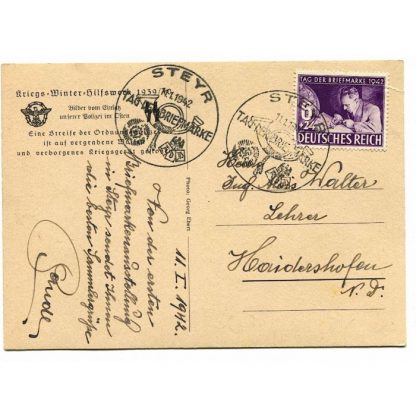 Kriegs-Winter-Hilfswerk 1939
Bilder vom Einsatz
unserer Polizei im Osten
Eine Streife der Ordnung
ist auf vergrabene Waffen
und verborgenes Kriegsgerät
STEYR
11.1.1942.
TAG DER BRIEFMARKE
STEYR
TAG DER BRIEFMARKE
TAG DER BRIEFMARKE 1942
DEUTSCHES REICH
Photo: Georg Ebert
Walter
Lehrer
Haidershofen
N. D.
11. I. 1942.
Von der ersten
Briefmarkenausstellung
in Steyr sendet Ihnen
die besten Sammlergrüße